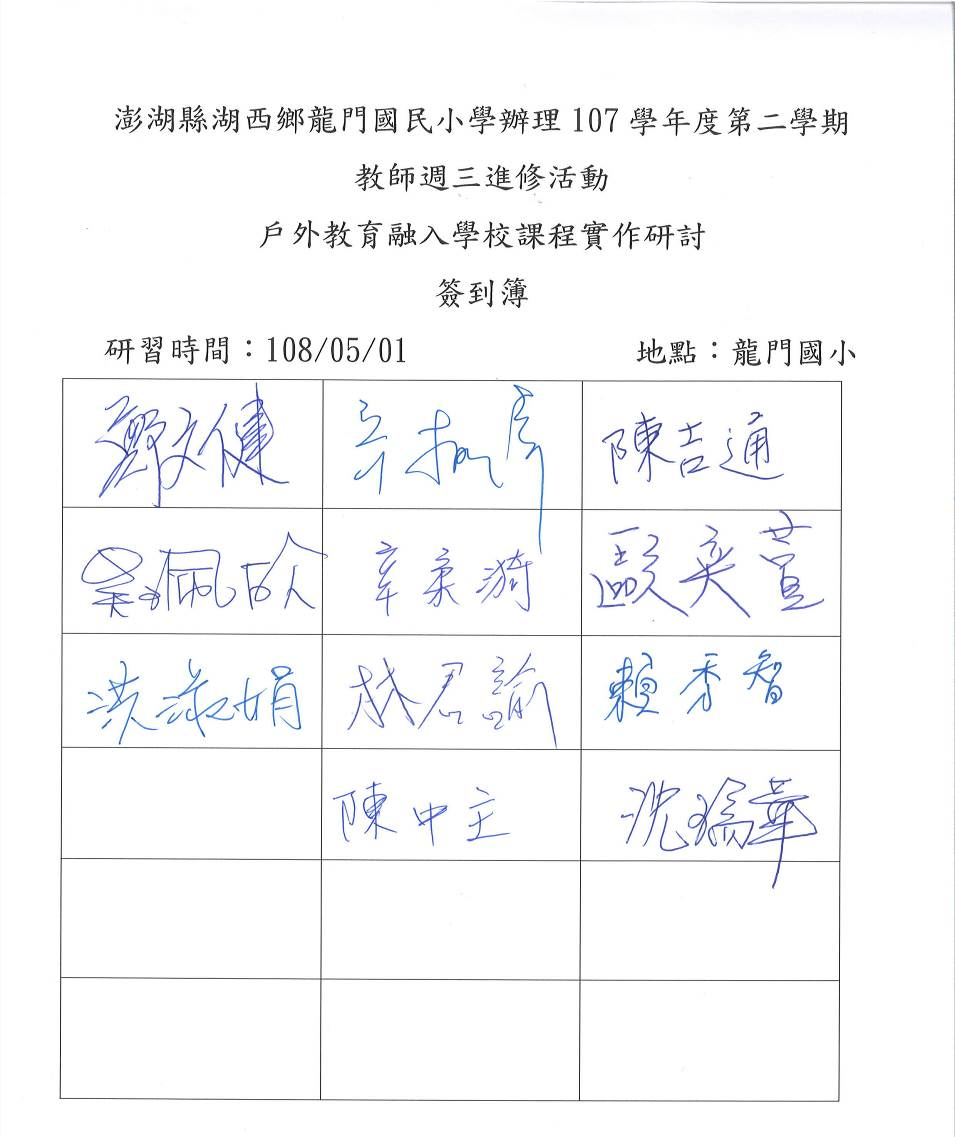 澎湖縣湖西鄉龍門國民小學辦理 107 學年度第二學期
教師週三進修活動
戶外教育融入學校課程實作研討
簽到簿
研習時間：108/05/01 地點：龍門國小
鄭文健 辛 陳吉通
吳佩 辛柔漪 歐奕萱
洪淑娟 林君諭 賴秀智
陳中主 沈瑞華